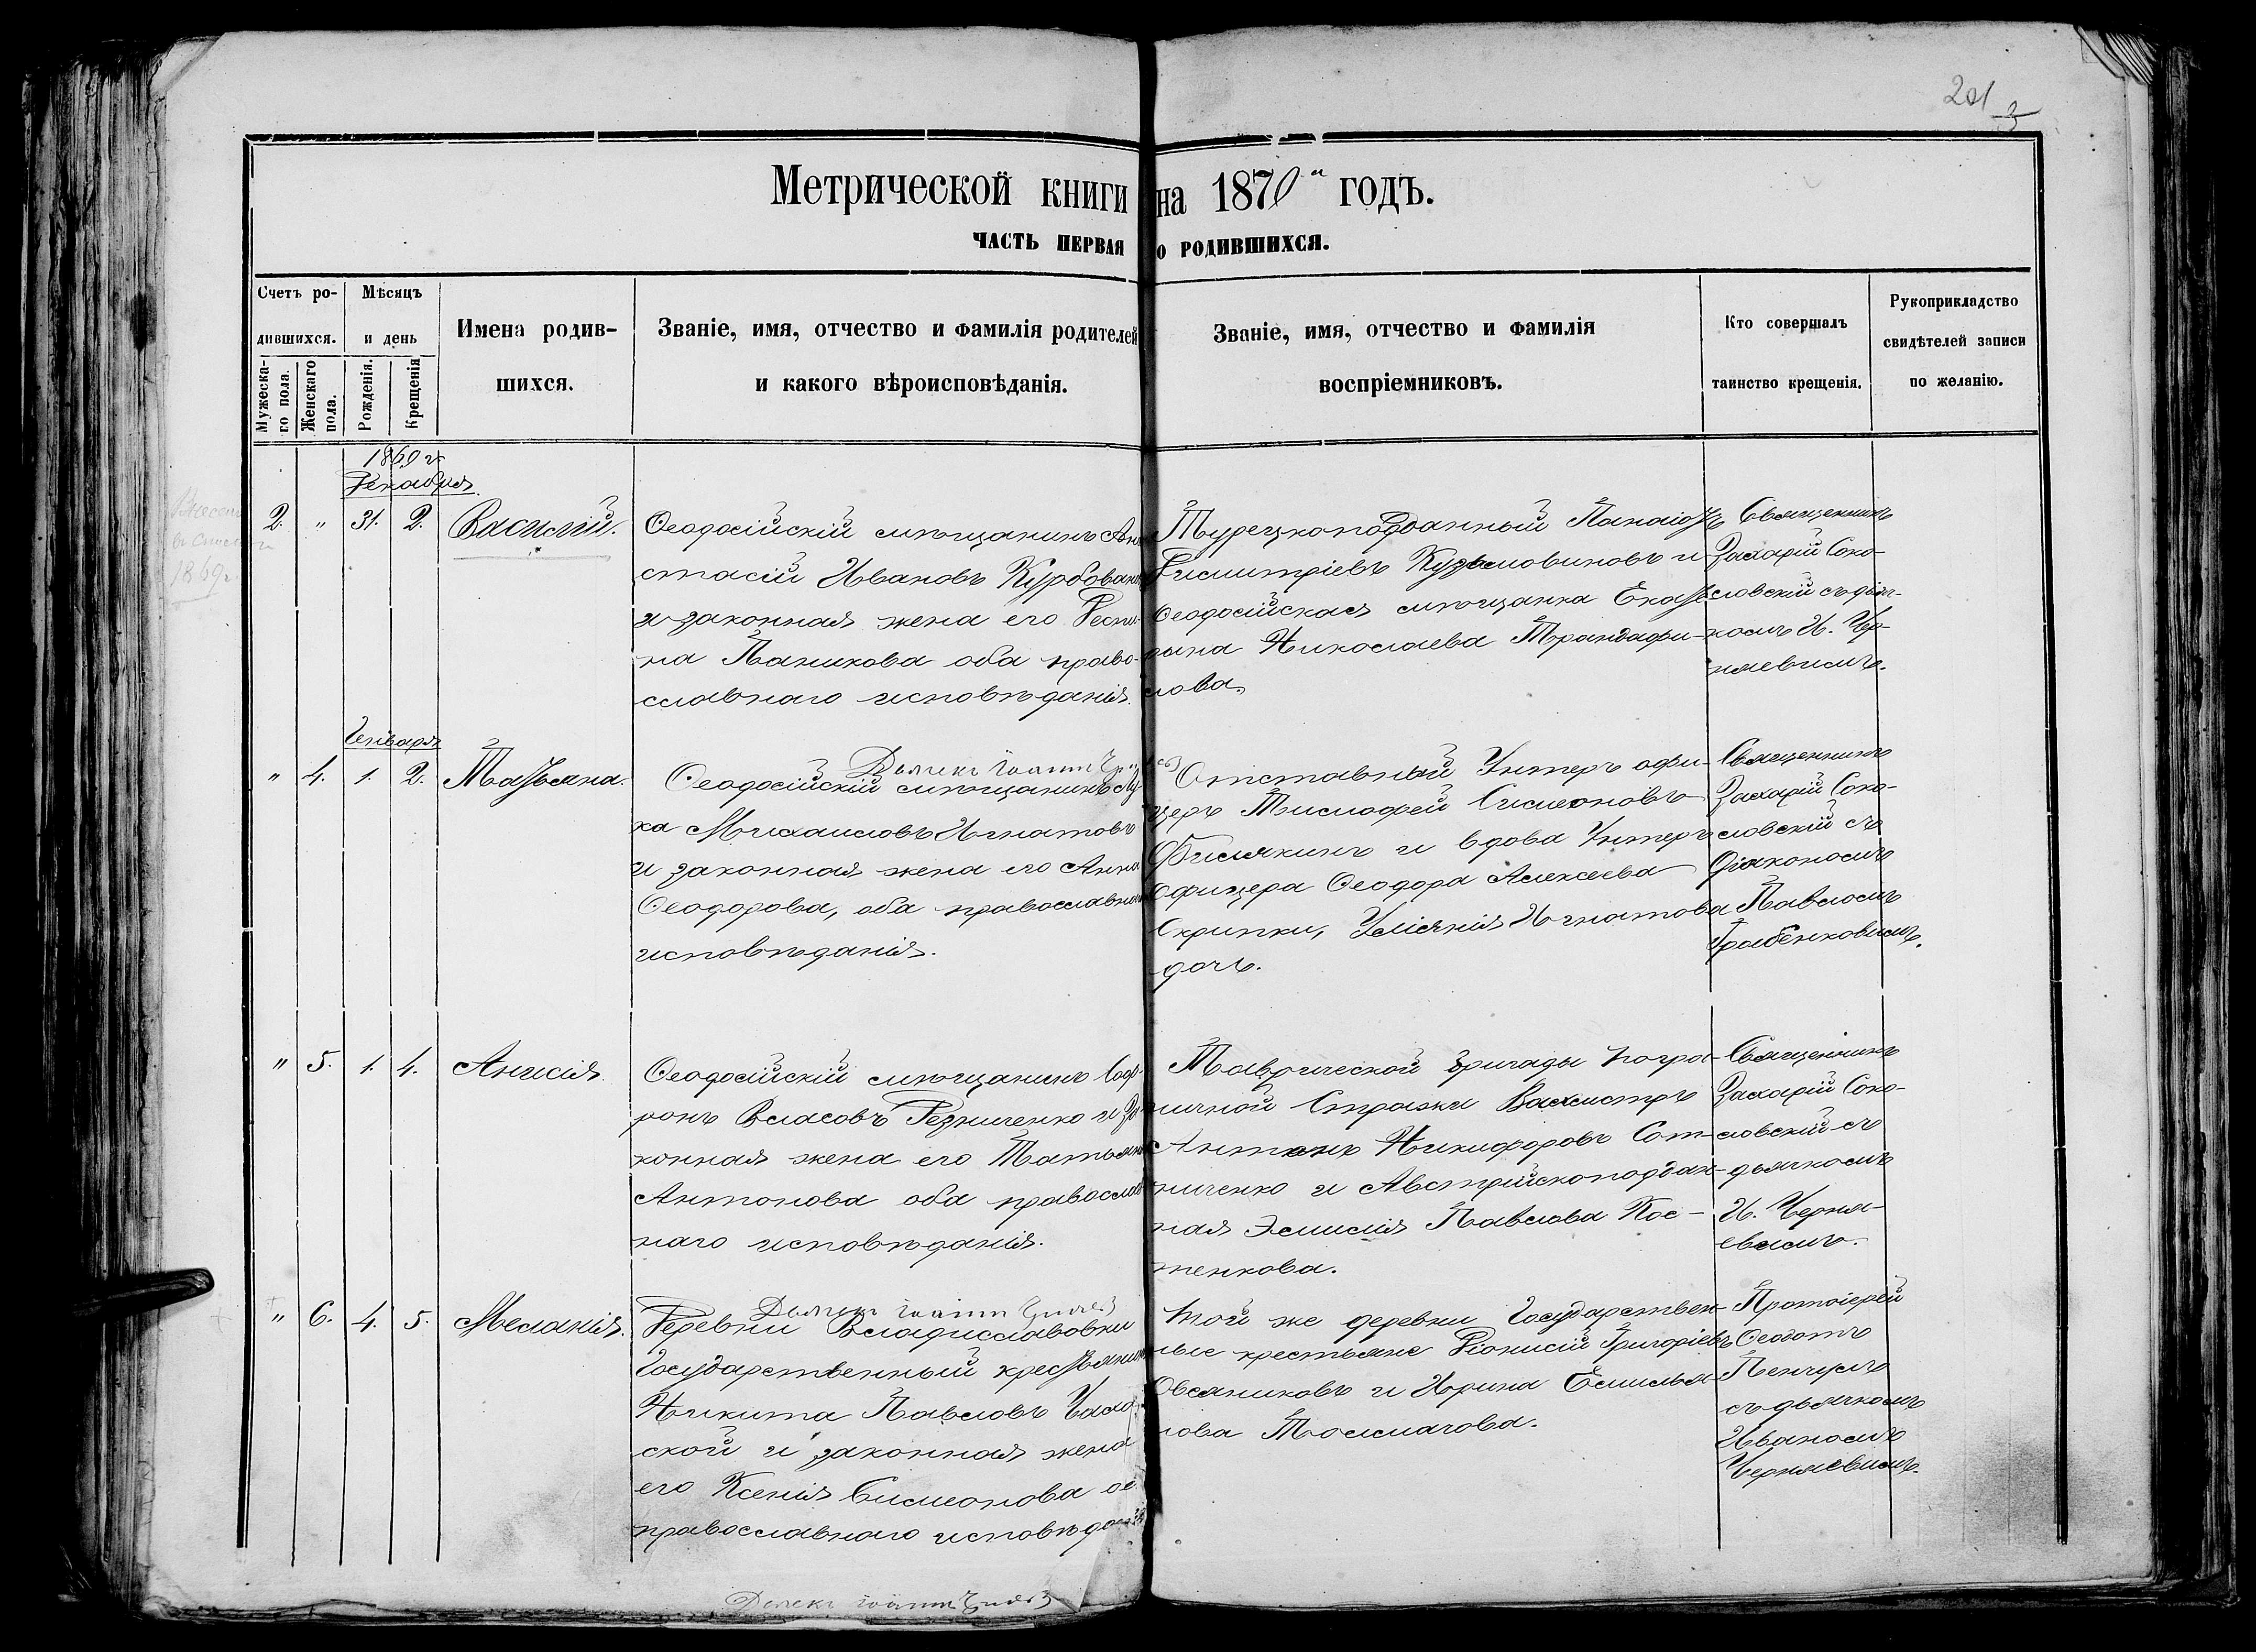 201
3
Метрической книги на 1870 а годъ.
ЧАСТЬ ПЕРВАЯ о РОДИВШИХСЯ.
Счетъ ро-
дившихся.
Мужеска-
го пола.
Женскаго
пола.
Мѣсяцъ
и день
Рожденія.
Крещенія
Имена родив-
шихся.
Званіе, имя, отчество и фамилія родителей
и какого вѣроисповѣданія.
Званіе, имя, отчество и фамилія
воспріемниковъ.
Кто совершалъ
таинство крещенія.
Рукоприкладство
свидѣтелей записи
по желанію.
1869 г
Декабря
1869г.
2. " 31. 2. Василій.
Ѳеодосійскій мѣщанинъ Ана
стасій Ивановъ Курбован
и законная жена его Деспи-
на Паникова оба право-
славнаго исповѣданія.
Турецкоподданный Панаіотъ
Димитріевъ Кузьмовиновъ и
Ѳеодосійская мѣщанка Екате
рина Николаева Трандафи-
лова,
Священникъ
Захарій Соко-
ловскій съ дьяч-
комъ И. Чер-
няевимъ.
Генваря
" 4. 1. 2. Татьяна.
Дьячекъ Іоаннъ
Ѳеодосійскій мѣщанинъ Лу
ка Михаиловъ Игнатовъ
и законная жена его Анна
Ѳеодорова, оба православна
исповѣданія.
Отставный Унтеръ офи-
церъ Тимофей Симеоновъ
и вдова Унтеръ
Офицера Ѳеодора Алексеева
Скрипки, Уліянія Игнатова
дочь.
Священникъ
Захарій Соко-
ловскій съ
Діакономъ
Павломъ
Грабенковимъ.
" 5. 1. 4. Анисія
Ѳеодосійскій мѣщанинъ Соф-
ронъ Власовъ Резниченко и За
конная жена его Татьяна
Антонова оба православ
наго исповѣданія.
Таврической бригады погра-
ничной Стражи Вахмистръ
Антонъ Никифоровъ Сот-
ниченко и Австрійскоподдан-
ная Эмилія Павлова Кос-
тенкова.
Священникъ
Захарій Соко-
ловскій съ
дьячкомъ
И. Черня-
евимъ.
" 6. 4. 5. Меланія.
Дьячекъ Іоаннъ
Деревни Владиславовки
Государственный крестьянин
Никита Павловъ
ской и законная жена
его Ксенія Симеонова об
православнаго исповѣданія
Той же деревни Государствен-
ные крестьяне Діонисій Григоріевъ
Овсяниковъ и Ирина Емилья-
нова Толмачова.
Протоіерей
Ѳеодотъ
съ дьячкомъ
Иваномъ
Черняевимъ.
Дьячекъ Іоаннъ